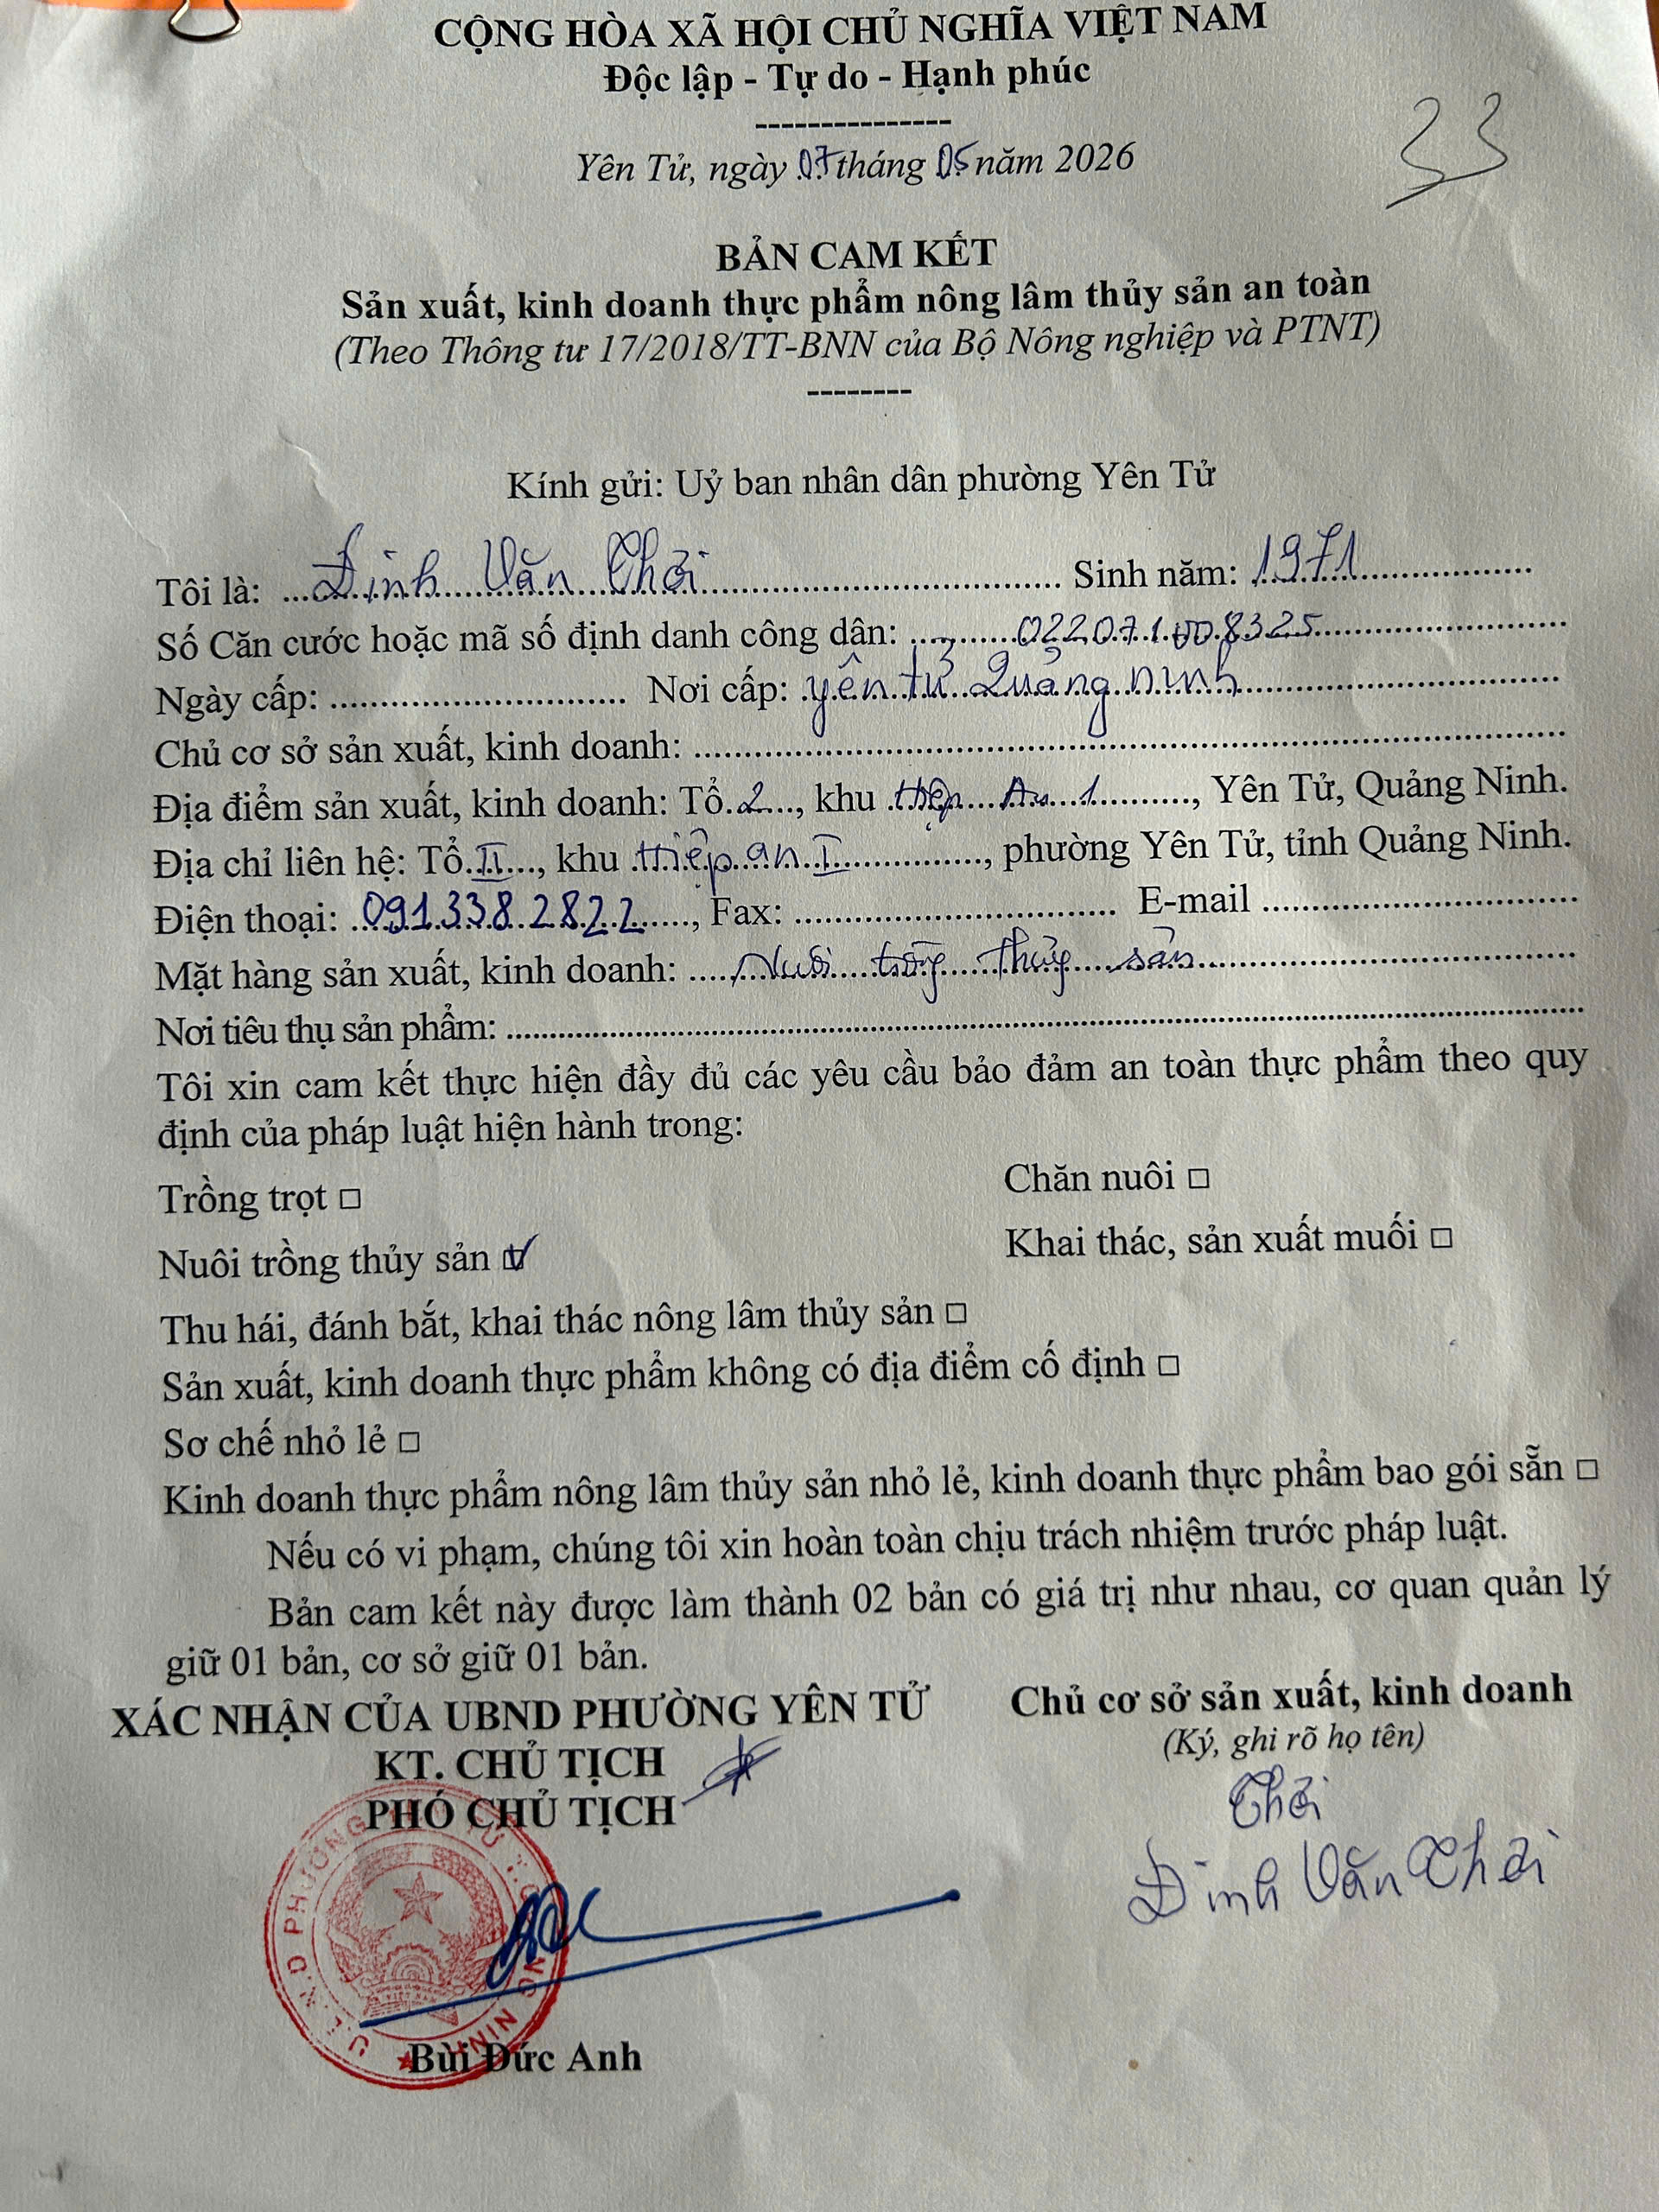 CỘNG HÒA XÃ HỘI CHỦ NGHĨA VIỆT NAM
Độc lập - Tự do - Hạnh phúc
---------------
Yên Tử, ngày 07 tháng 05 năm 2026
33
BẢN CAM KẾT
Sản xuất, kinh doanh thực phẩm nông lâm thủy sản an toàn
(Theo Thông tư 17/2018/TT-BNN của Bộ Nông nghiệp và PTNT)
--------
Kính gửi: Uỷ ban nhân dân phường Yên Tử
Tôi là: Đinh Văn Thời Sinh năm: 1971
Số Căn cước hoặc mã số định danh công dân: 022071008325
Ngày cấp: ............................ Nơi cấp: yên tử Quảng ninh
Chủ cơ sở sản xuất, kinh doanh: ............................
Địa điểm sản xuất, kinh doanh: Tổ 2, khu thiệp An 1, Yên Tử, Quảng Ninh.
Địa chỉ liên hệ: Tổ II, khu thiệp an I, phường Yên Tử, tỉnh Quảng Ninh.
Điện thoại: 0913382822, Fax: ............................ E-mail ............................
Mặt hàng sản xuất, kinh doanh: Nuôi trồng thủy sản
Nơi tiêu thụ sản phẩm: ............................
Tôi xin cam kết thực hiện đầy đủ các yêu cầu bảo đảm an toàn thực phẩm theo quy
định của pháp luật hiện hành trong:
Trồng trọt □ Chăn nuôi □
Nuôi trồng thủy sản ☑ Khai thác, sản xuất muối □
Thu hái, đánh bắt, khai thác nông lâm thủy sản □
Sản xuất, kinh doanh thực phẩm không có địa điểm cố định □
Sơ chế nhỏ lẻ □
Kinh doanh thực phẩm nông lâm thủy sản nhỏ lẻ, kinh doanh thực phẩm bao gói sẵn □
Nếu có vi phạm, chúng tôi xin hoàn toàn chịu trách nhiệm trước pháp luật.
Bản cam kết này được làm thành 02 bản có giá trị như nhau, cơ quan quản lý
giữ 01 bản, cơ sở giữ 01 bản.
XÁC NHẬN CỦA UBND PHƯỜNG YÊN TỬ
KT. CHỦ TỊCH
PHÓ CHỦ TỊCH
Bùi Đức Anh
Chủ cơ sở sản xuất, kinh doanh
(Ký, ghi rõ họ tên)
Thời
Đinh Văn Thời